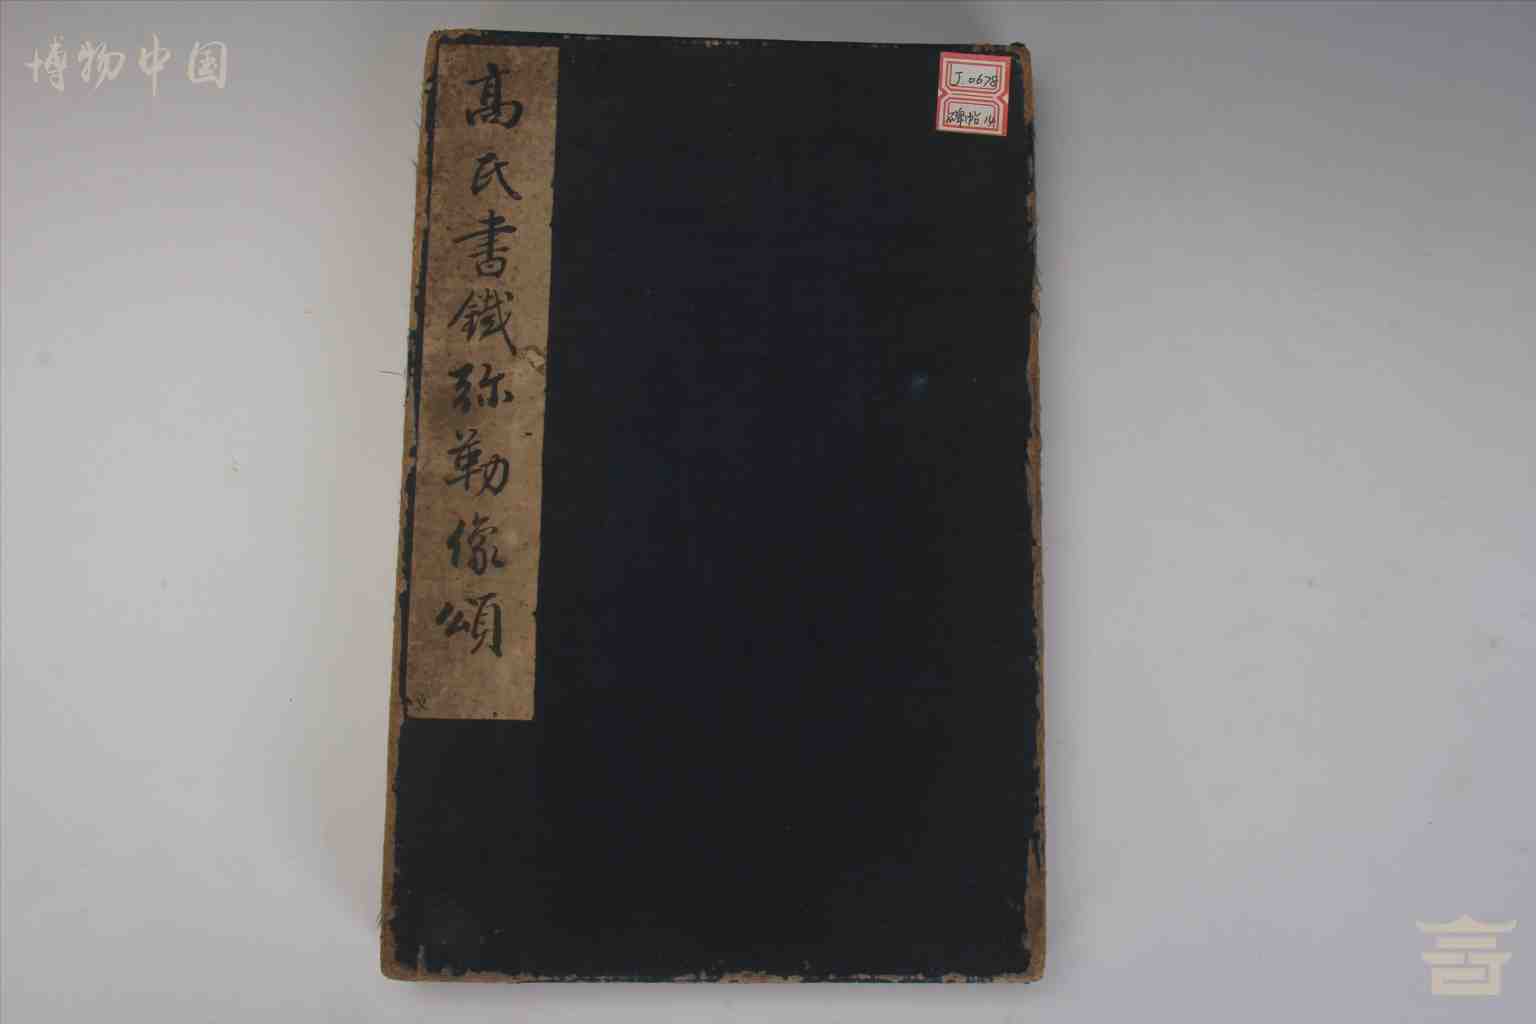 博物中国
高氏書鐵弥勒像頌
J 0678
碑帖 14